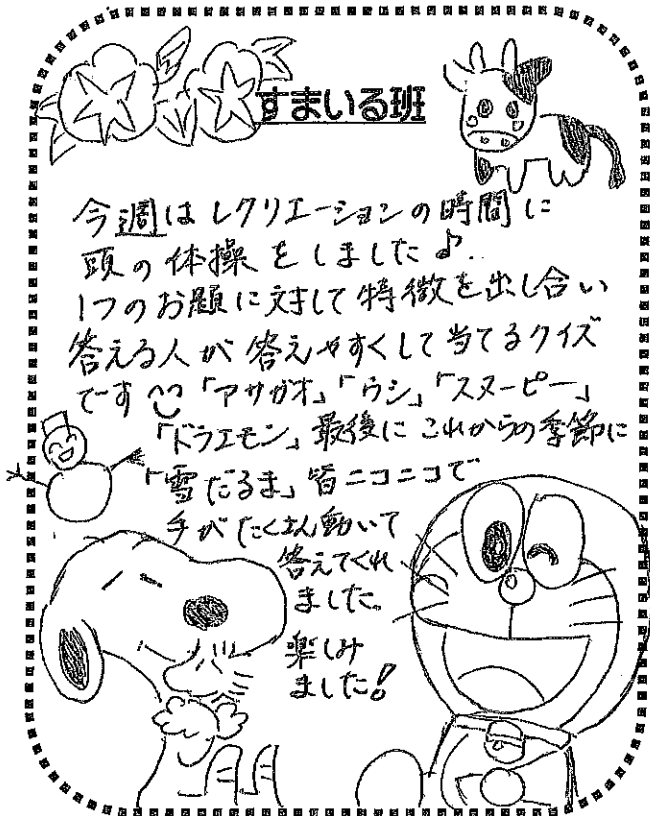 すまいる班
今週はレクリエーションの時間に
頭の体操をしました♪..
1つのお題に対して特徴を出し合い
答える人が答えやすくして当てるクイズ
です^^「アサガオ」「ウシ」「スヌーピー」
「ドラエモン」最後にこれからの季節に
「雪だるま」皆ニコニコで
手がたくさん動いて
答えてくれ
ました。
楽しみ
ました!